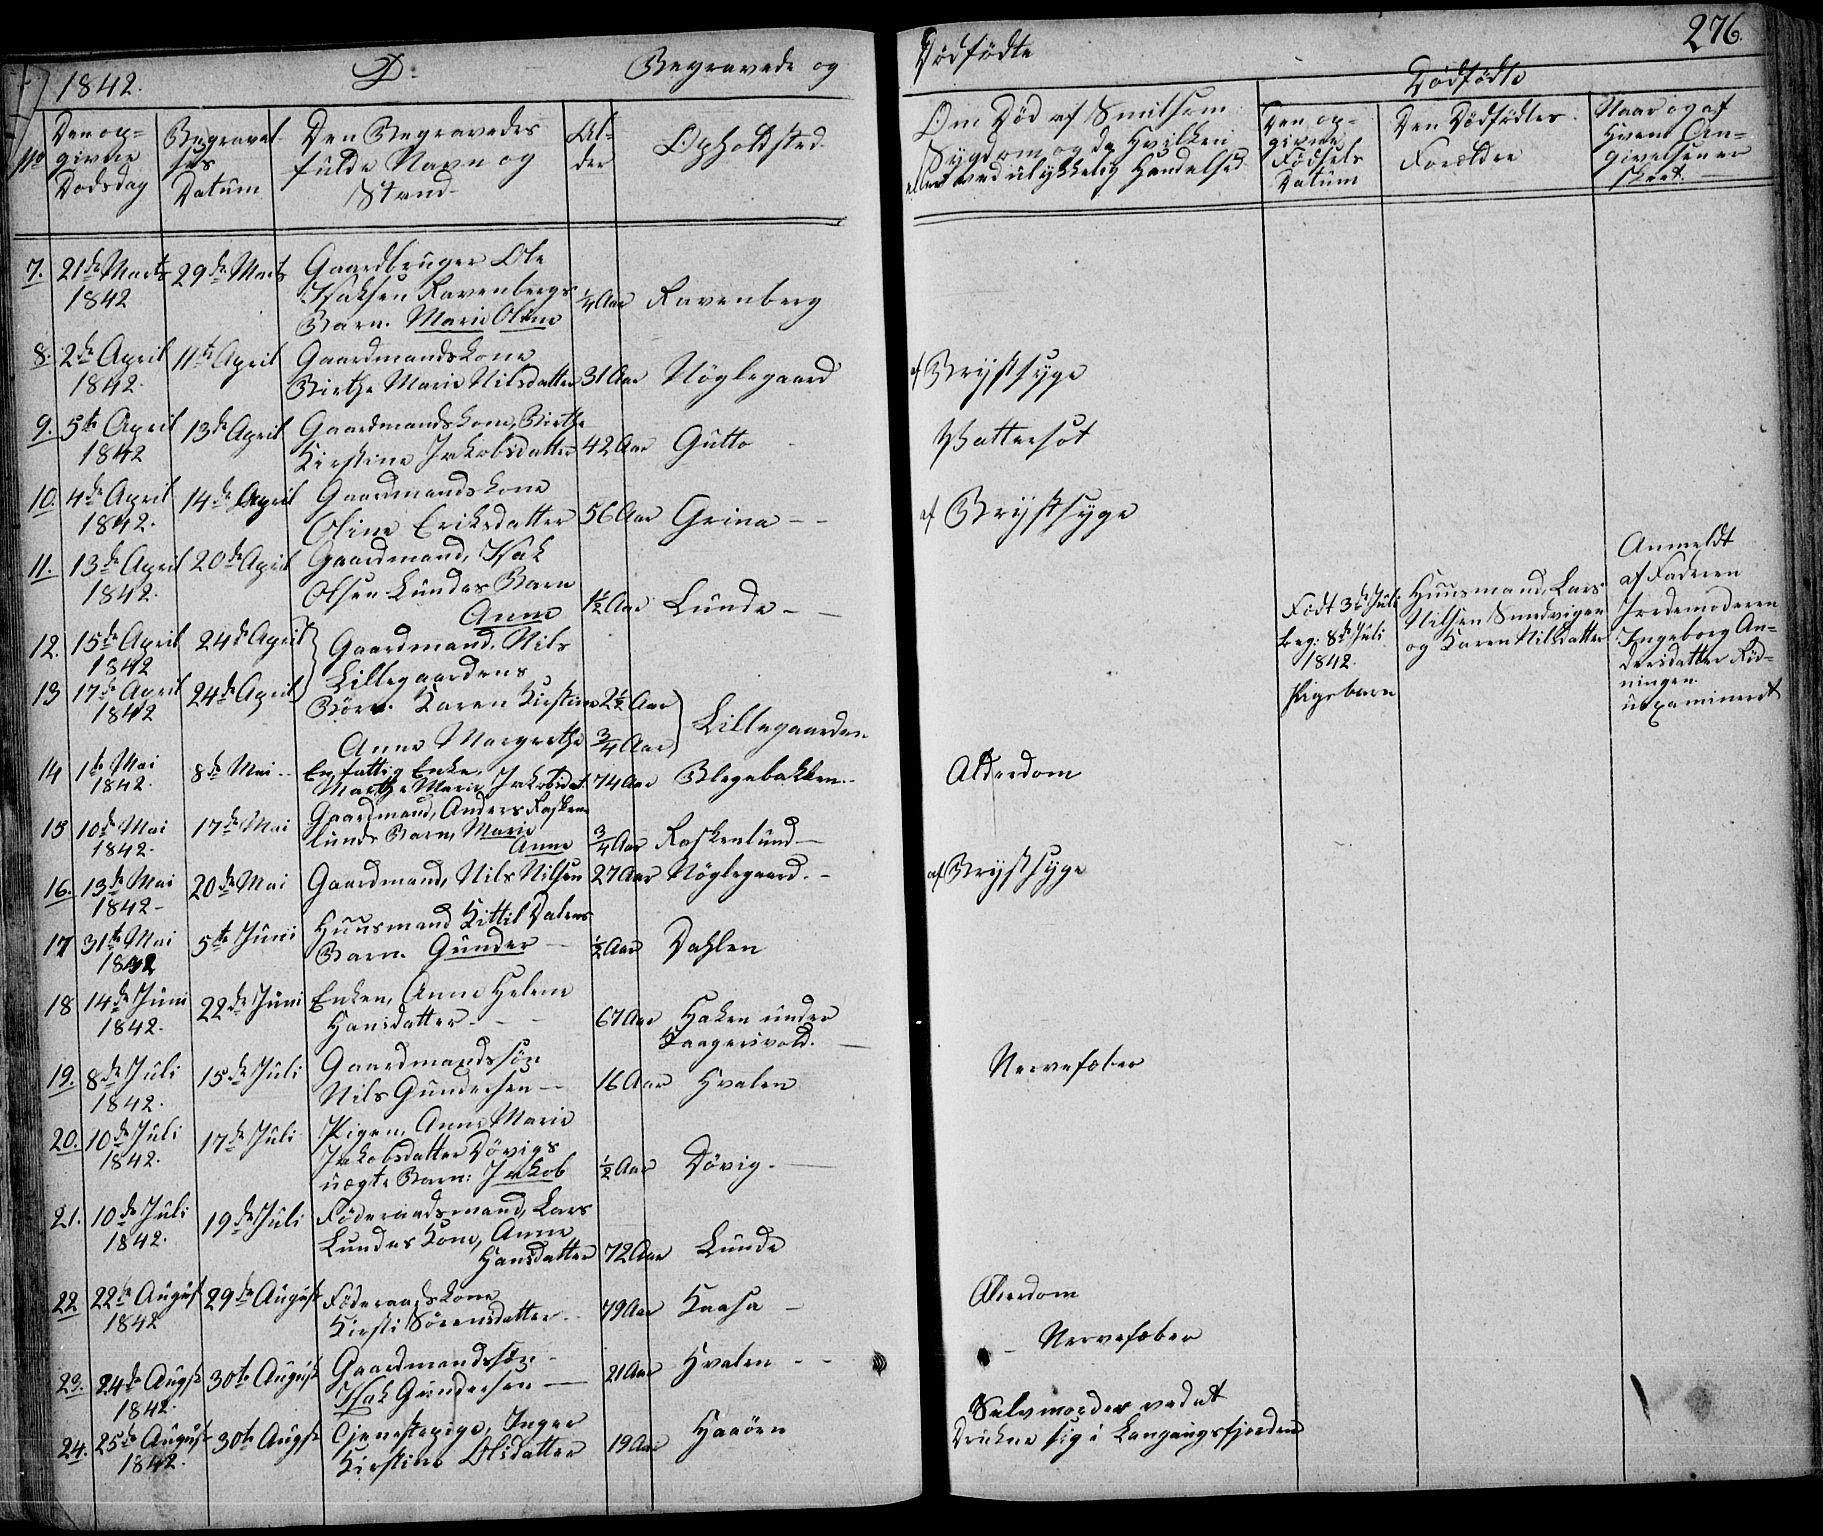 1842. D: Begravede og
No
Den op-
givne
Dødsdag
Begravel-
ses
Datum
Den Begravedes
fulde Navn og
Stand
Al-
der
Opholdsted.
7. 21de Marts 29de Marts Gaardbruger Ole
1842 Isaksen Ravenbergs
Barn. Marie Oline ¼ Aar Ravenberg
8. 2de April 11te April Gaardmandskone
1842. Birthe Marie Nilsdatter 31 Aar Nøglegaard
9. 5te April 13de April Gaardmandskone, Birthe
1842 Kirstine Jakobsdatter 42 Aar Gutto
10. 4de April 14de April Gaardmandskone
1842. Oline Eriksdatter 56 Aar Grina - -
11. 13de April 20de April Gaardmand, Isak
1842. Olsen Lundes Barn
Anne 1½ Aar Lunde - -
12. 15de April 24de April Gaardmand. Nils
1842 Lillegaardens
13 17de April 24de April Børn. Karen Kirstine 2½ Aar
1842
Anne Margrethe ¾ Aar Lillegaarden
14 1te Mai 8de Mai - En fattig Enke,
1842. Marthe Marie Jakobsdat. 74 Aar Blegebakken. -
15 10de Mai 17de Mai Gaardmand, Anders Rosken-
1842. lunds Barn, Marie
Anne ¾ Aar Roskenlund -
16. 13de Mai 20de Mai Gaardmand, Nils Nilsen 27 Aar Nøglegaard. -
1842 -
17 31te Mai 5te Juni Huusmand Kittil Dalens
1842 Barn. Gunder - ½ Aar Dahlen
18 14de Juni 22de Juni Enken, Anne Helene
1842. Hansdatter - - - 67 Aar Haken under
Saagerivold. -
19. 8de Juli 15de Juli Gaardmandssøn
1842. Nils Gundersen - 16 Aar Hvalen
20. 10de Juli 17de Juli Pigen, Anne Marie
1842. Jakobsdatter Døvigs
uægte Barn: Jakob ½ Aar Døvig. -
21. 10de Juli 19de Juli Føderaadsmand, Lars
1842. Lundes Kone, Anne
Hansdatter 72 Aar Lunde
22 22de August 29de August Føderaadskone
1842 Kirsti Sørensdatter - 79 Aar Kaasa -
23. 24de Augst 30te August Gaardmandssøn -
1842. Isak Gundersen - 21 Aar Hvalen - -
24. 25de August 30te Augst Tjenestepige, Inger
1842. Kirstine Olsdatter 19 Aar Haaøen
Dødfødte 276.
Om Død af Smitsom
Sygdom og da Hvilken
eller ved ulykkelig Hændelse
Dødfødte
Den op-
givne
Fødsels
Datum
Den Dødfødtes
Forældre
Naar og af
Hvem An-
givelsen er
skeet. -
af Brystsyge
Vattersot
af Brystsyge
Født 3de Juli
beg: 8de Juli
1842.
Pigebarn
Huusmand, Lars
Nilsen Smedvigen
og Karen Nilsdatter
Anmeldt
af Faderen
Jordemoderen
Ingeborg An-
dersdatter Rød-
ningen.
uexamineret
Alderdom
af Brystsyge
Nervefeber
Alderdom
- Nervefeber
Selvmorder ved at
Drukne sig i Langangsfjorden